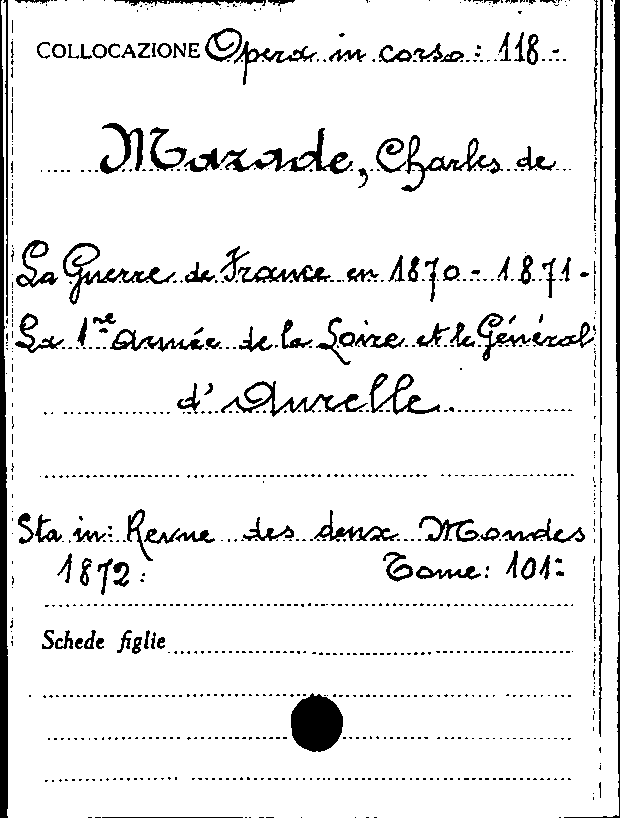 COLLOCAZIONE Opera in corso: 118-
Mazade, Charles de
La Guerre de France en 1870-1871-
La 1re armée de la Loire et le Général
d'Aurelle.
Sta in: Revue des deux Mondes
1872: Tome: 101=
Schede figlie